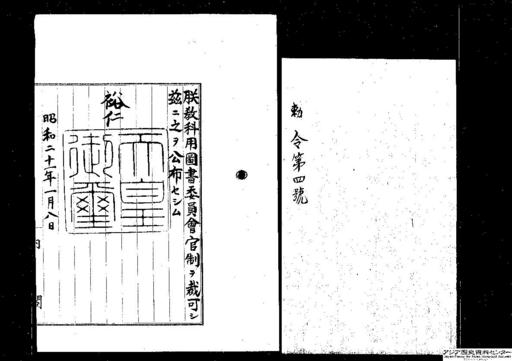 勅令第四號
朕教科用圖書委員會官制ヲ裁可シ
茲ニ之ヲ公布セシム
裕仁
天皇御璽
昭和二十一年一月八日
内閣
アジア歴史資料センター